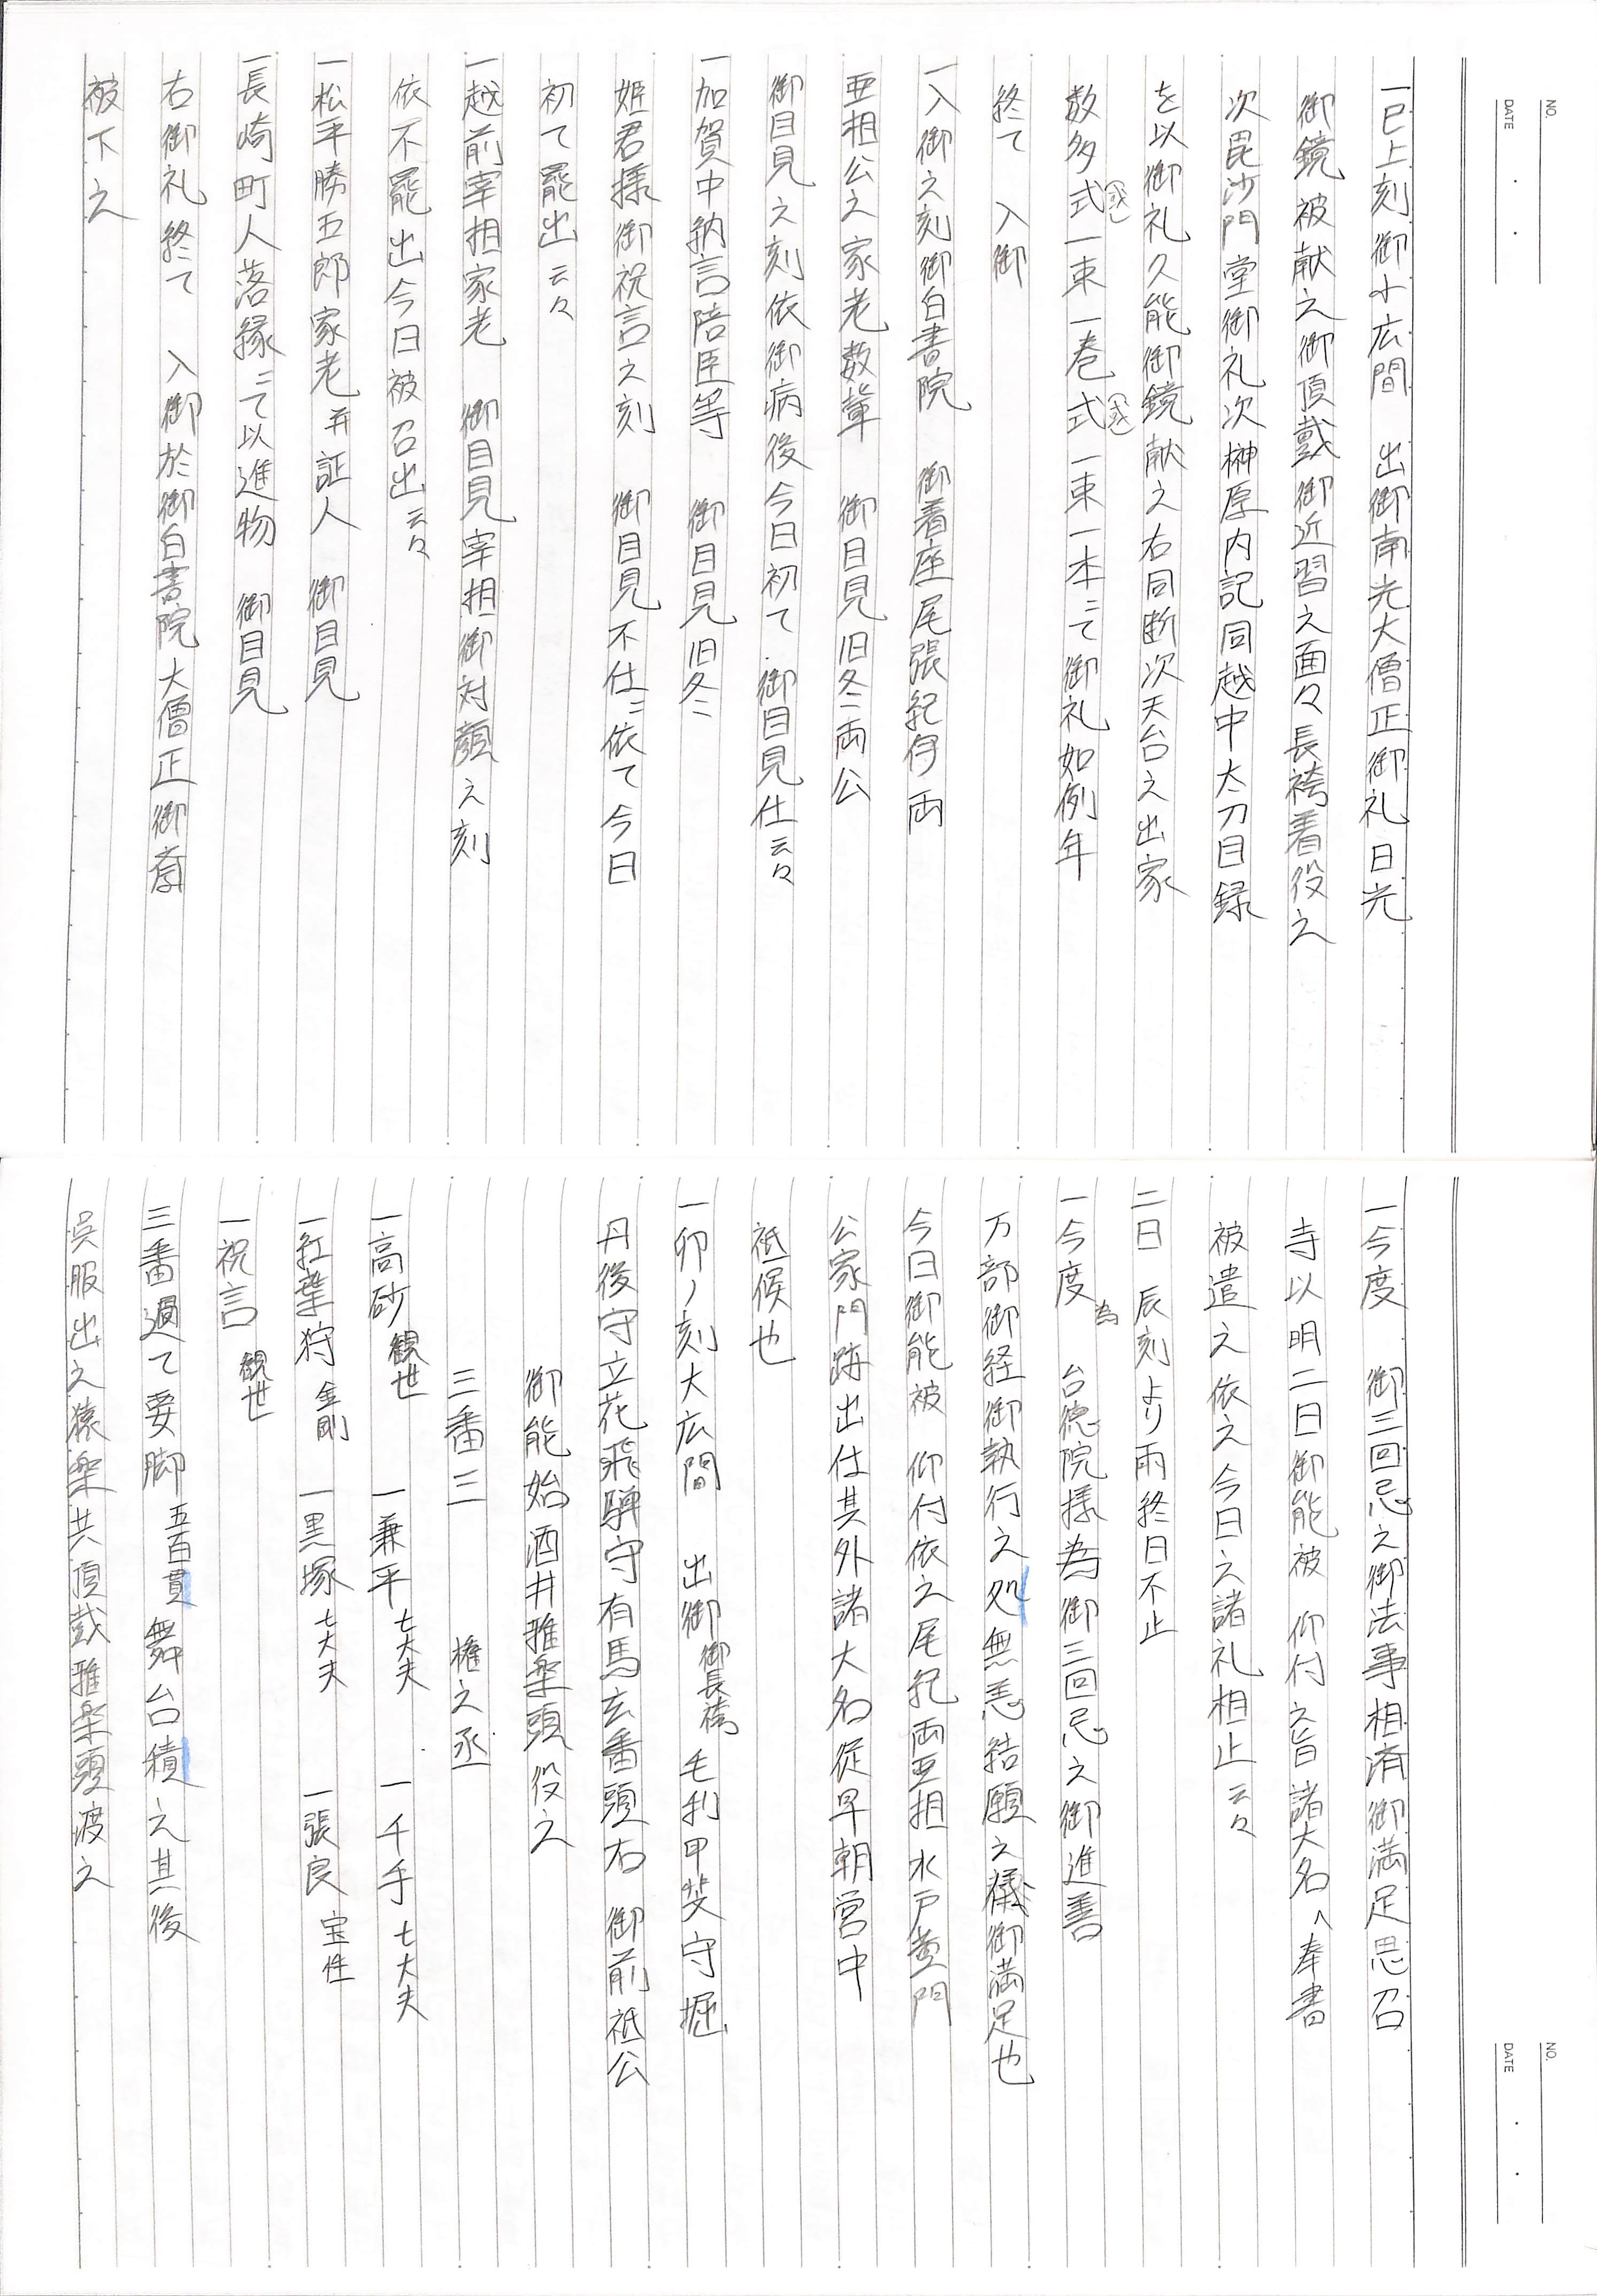 NO.
DATE
一巳上刻御小広間　出御南光大僧正御礼日光
御鏡被献之御頂戴御近習之面々長袴着役之
次毘沙門堂御礼次榊原内記同越中太刀目録
を以御礼久能御鏡献之右同断次天台之出家
数多式一束一巻式一束一本ニて御礼如例年
終て　入御
一入御之刻御白書院　御着座尾張紀伊両
亜相公之家老数輩　御目見旧冬ニ両公
御目見之刻依御病後今日初て御目見仕云々
一加賀中納言陪臣等　御目見旧冬ニ
姫君様御祝言之刻　御目見不仕ニ依て今日
初て罷出云々
一越前宰相家老　御目見宰相御対顔之刻
依不罷出今日被召出云々
一松平勝五郎家老并証人　御目見
一長崎町人落縁ニて以進物　御目見
右御礼終て　入御於御白書院大僧正御斎
被下之
NO.
DATE
一今度　御三回忌之御法事相済御満足思召
寺以明二日御能被　仰付之旨諸大名へ奉書
被遣之依之今日之諸礼相止云々
二日　辰刻より雨終日不止
一今度為　台徳院様為御三回忌之御進善
万部御経御執行之処無恙結願之儀御満足也
今日御能被　仰付依之尾紀両亜相水戸黄門
公家門跡出仕其外諸大名従早朝営中
祗候也
一卯ノ刻大広間　出御御長袴毛利甲斐守堀
丹後守立花飛騨守有馬玄蕃頭右　御前祗公
御能始酒井雅楽頭役之
三番三　権之丞
一高砂　観世　一兼平　七大夫　一千手　七大夫
一紅葉狩　金剛　一黒塚　七大夫　一張良　宝性
一祝言　観世
三番過て要脚五百貫舞台積之其後
呉服出之猿楽共頂戴雅楽頭渡之